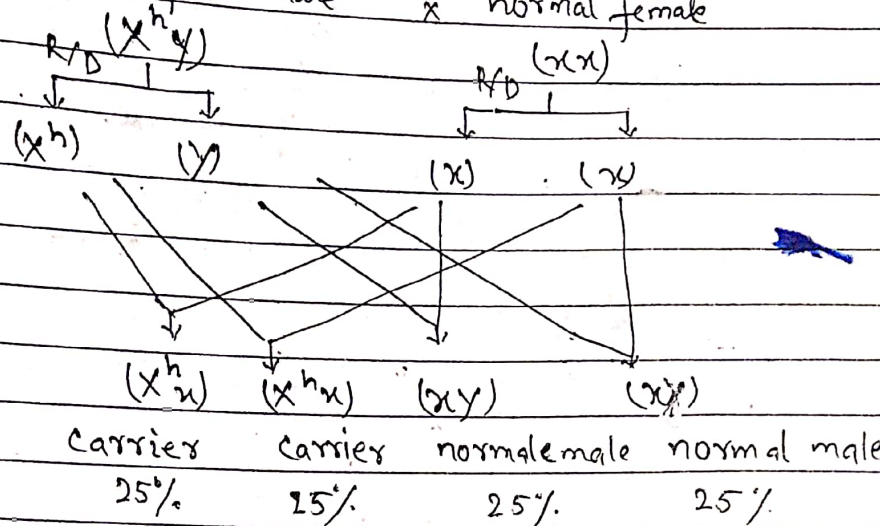 x normal female
R/D (X^h y) R/D (xx)
(X^h) (y) (x) (x)
(X^h x) (X^h x) (xy) (xy)
carrier carrier normalemale normal male
25% 25% 25% 25%